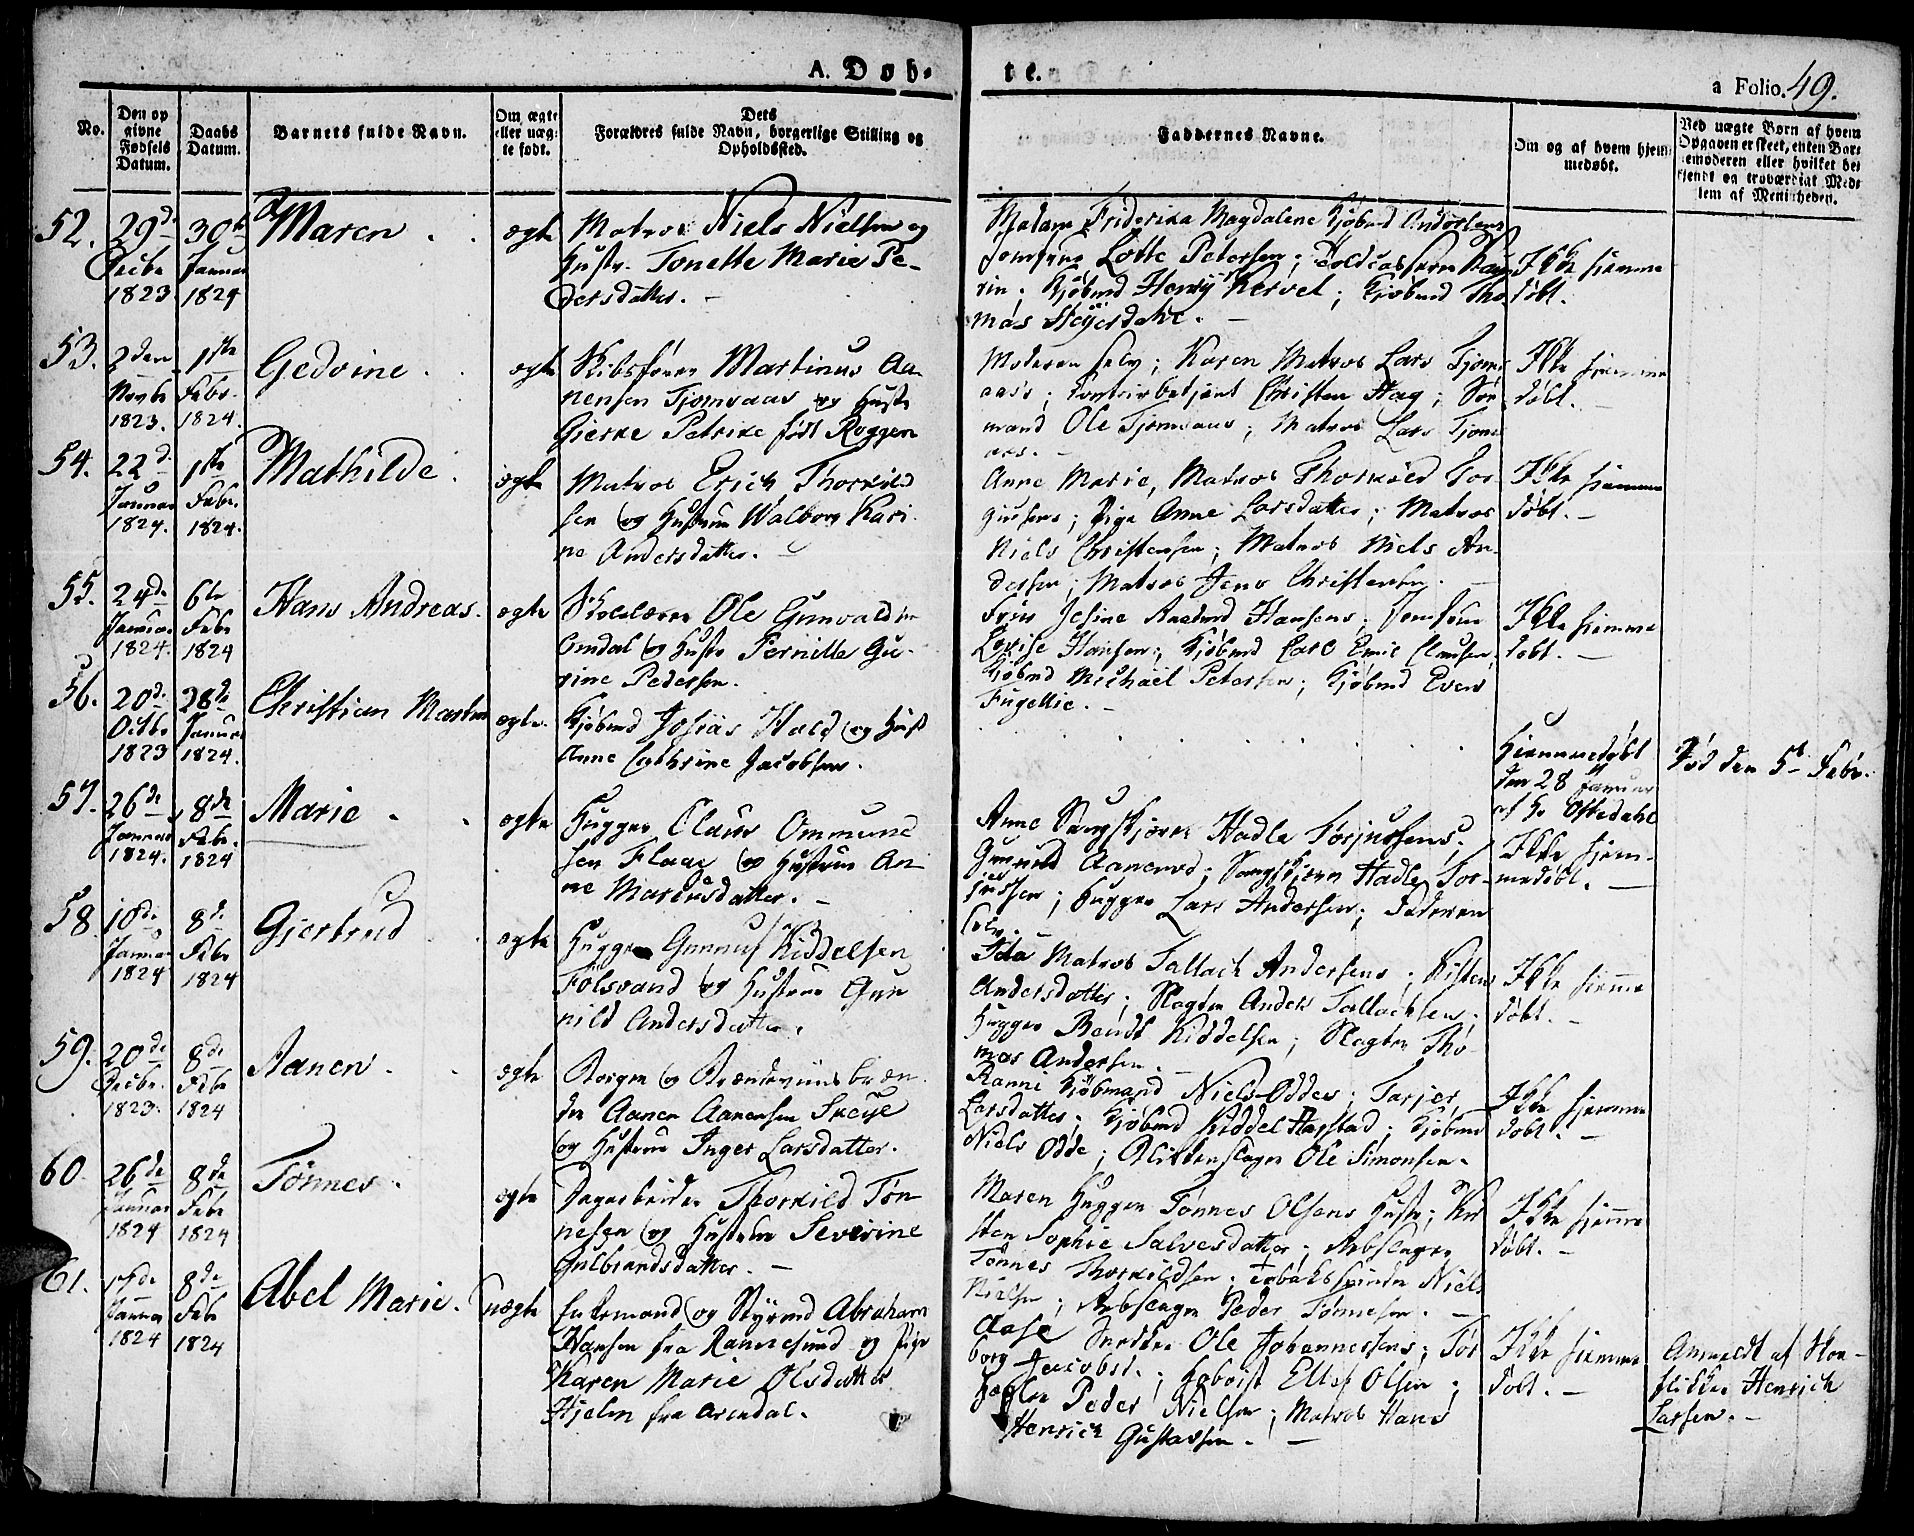 A. Døb-
te.
a Folio. 49.
No.
Den op
givne
Fødsels
Datum.
Daabs
Datum.
Barnets fulde Navn.
Om ægte
eller uæg-
te født.
Dets
Forældres fulde Navn, borgerlige Stilling og
Opholdssted.
Faddernes Navne.
Om og af hvem hjem-
medøbt.
Ved uægte Børn af hvem
Opgaven er skeet, enten Bar-
nemoderen eller hvilket be-
kjendt og troværdigt Med-
lem af Menigheden.
52.
29d
Decbr
1823
30te
Januar
1824
Maren
ægte
Matros Niels Nielsen og
Hustr. Tonette Marie Pe-
dersdatter.
Madam Friderika Magdalene Kjøbmd
Jomfrue Lotte Petersen;
Kjøbmd Henry Kervel; Kjøbmd Tho-
mas Heyerdahl.
Ikke hjemme
døbt.
53.
2den
Novbr
1823.
1ste
Febr.
1824.
Gedvine
ægte
Skibsfører Martinus Aa-
nensen Tjomsaas og Hustr
Gierke Petrike født Roggen
Moderen selv; Karen Matros Lars Tjoms
aas; Christen Hag; Sø-
mand Ole Tjomsaas; Matros Lars Tjoms
aas.
Ikke hjemme
døbt.
54.
22d
Januar
1824.
1ste
Febr.
1824.
Mathilde
ægte
Matros Erich Thorkild
sen og Hustrue Walborg Kari-
ne Andersdatter.
Anne Marie, Matros Thorkild Tor-
giusens; Pige Anne Larsdatter; Matros
Niels Christensen; Matros Niels An-
dersen; Matros Jens Christensen.
Ikke hjemme
døbt.
55.
24de
Januar
1824.
6te
Febr
1824
Hans Andreas.
ægte
Skolelærer Ole Gunvaldsen
Omdal og Hustr Pernille Gu-
rine Pedersen.
Frue Jesine Hansens; Jomfrue
Lovise Hansen; Kjøbmd Carl Emil Clausen;
Kjøbmd Michael Petersen; Kjøbmd Even
Fugellie.
Ikke hjemme
døbt.
56.
20de
Octbr
1823
28de
Januar
1824.
Christian Martin
ægte.
Kjøbmd Josias Hald og Hustr
Anne Cathrine Jacobsen.
Hjemmedøbt
den 28 Januar
af Hr Oftedahl
Død den 5te Febr.
57.
26de
Januar
1824.
8de
Febr.
1824
Marie
ægte
Hugger Claus Ommund
sen Flaae og Hustrue An-
ne Mariusdatter.
Anne Hadle Torjussens;
Gunnild Aanensd; Hadle Tor-
jussen; Hugger Lars Andersen; Faderen
selv.
Ikke hjem-
medøbt.
58.
10de
Januar
1824
8de
Febr
1824
Gjertrud
ægte
Hugger Gunnuf Kiddelsen
Følsvand og Hustrue Gun
nild Andersdatter.
Ida Matros Tallach Andersens; Kisten
Andersdatter; Slagter Anders Tallachsen;
Hugger Bendt Kiddelsen; Slagter Tho-
mas Andersen.
Ikke hjemme
døbt.
59.
20de
Decbr.
1823.
8de
Febr
1824
Aanen
ægte
Borger og Brændeviinsbræn-
der Aanen Aanensen Skeye
og Hustrue Inger Larsdatter.
Ranni Kjøbmand Niels Oddes; Tarjer
Larsdatter; Kjøbmd Kiddel Harstad; Kjøbmd
Niels Odde; Blikkenslager Ole Simonsen.
Ikke hjemme
døbt.
60
26de
Januar
1824
8de
Febr
1824
Tønnes
ægte
Dagarbeider Thorkild Tøn
nesen og Hustrue Severine
Gulbrandsdatter.
Maren Hugger Tønnes Olsens Hustr; Kir
sten Sophie Salvesdatter; Rebslager
Tønnes Thorkildsen; Tobaksspinder Niels
Nielsen; Rebslager Peder Tønnesen.
Ikke hjemme
døbt.
61.
Januar
1824
8de
Febr
1824
Abel Marie.
uægte
Enkemand og Styrmd Abraham
Hansen fra Rannesund og Pige
Karen Marie Olsdatter
Hjelm fra Arendal.
Aase Snedker Ole Johannessens; Tor
borg Jacobsd.; Hoboist Ellef Olsen;
Peder Nielsen; Matros Hans
Henrich Gustavsen.
Ikke hjemme
døbt.
Anmeldt af Skoe-
flikker Henrich
Larsen.